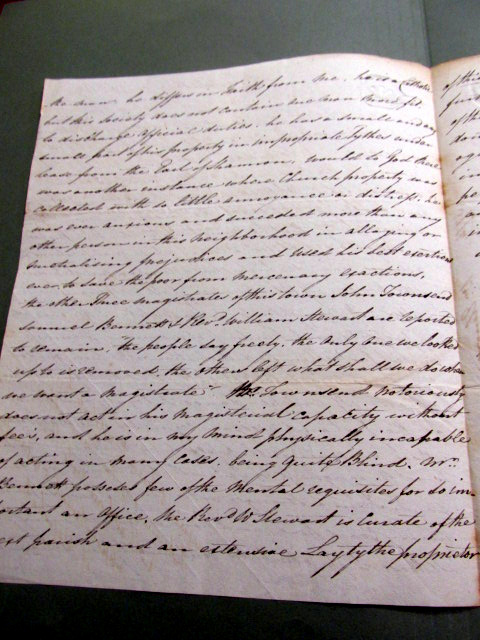 the man, he differs in faith from me, he is a Catholic
but this Society does not contain one man more fit
to discharge official duties, he has a small and a
small part of his property in impropriate Tythes under
lease from the Earl of Shannon, would to God there
was another instance where Church property was
collected with so little annoyance or distress. he
was ever anxious and succeeded more than any
other person in this Neighborhood in allaying or
neutralising prejudices and used his best exertions
ever to save the poor from mercenary exactions,
the other three magistrates of this town John Townsend
Samuel Bennett & Revd. William Stewart are reported
to remain, the people say freely, the only one we looked
up to is removed, the others left what shall we do when
we want a magistrate. Townsend notoriously
does not act in his magisterial capacity without
fee's, and he is in my mind physically incapable
of acting in many cases, being quite Blind, Mr.
Bennett possesses few of the mental requisites for so im
portant an office, the Revd W Stewart is Curate of the
parish and an extensive Layty the proprietor
of this
of th